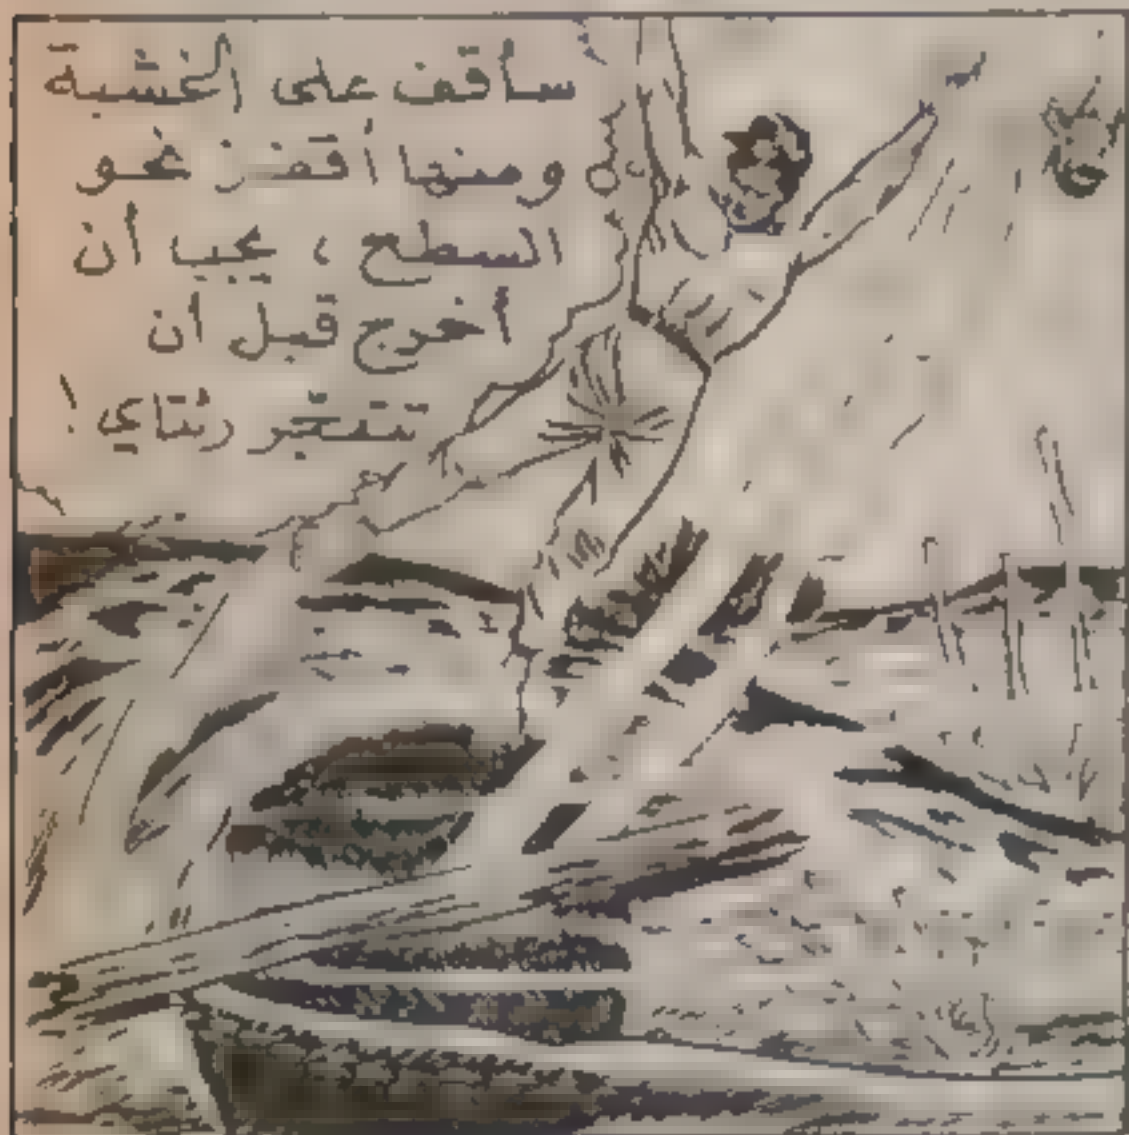 سأقف على الخشبة
ومنها أقفز نحو
السطح ، يجب أن
أخرج قبل أن
تنفجر رئتاي !